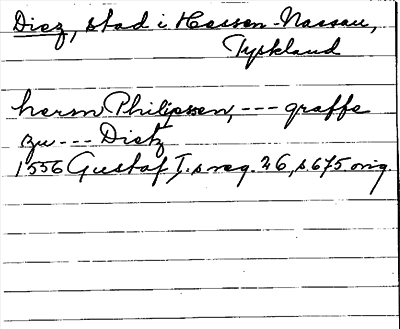 Diez, stad i Hessen-Nassau,
Tyskland
herm Philipssen, --- graffe
zu --- Dietz
1556 Gustaf I.s reg. 26, s. 675 orig.